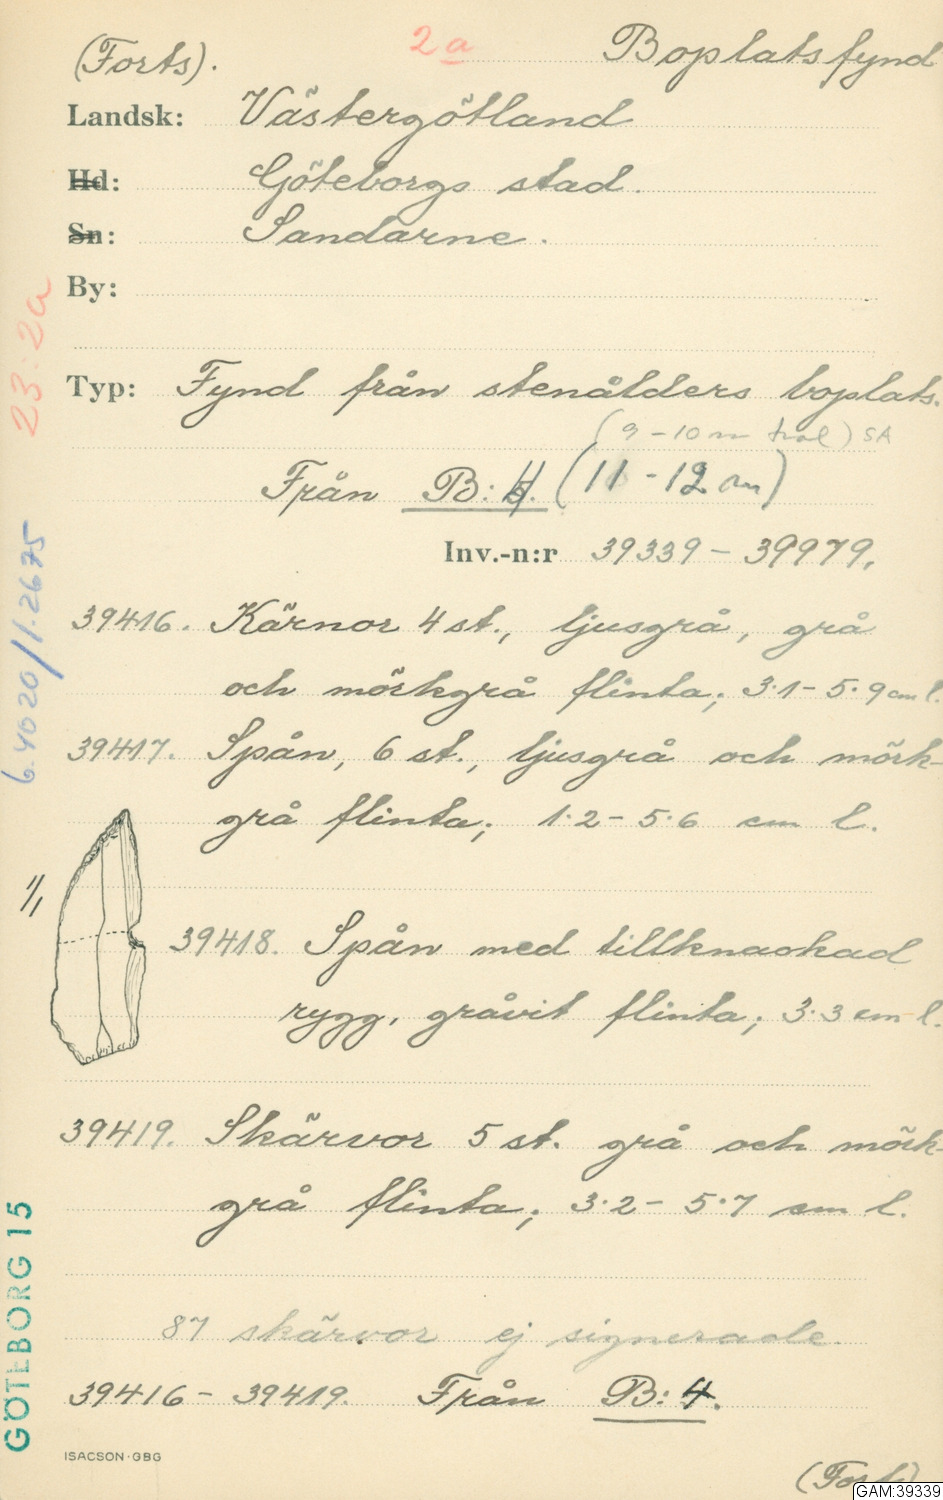 (Forts).
2a
Boplatsfynd
Landsk: Västergötland
Hd: Göteborgs stad.
Sn: Sandarne.
By:
Typ: Fynd från stenålders boplats.
(9-10 m niv) SA
Från B:4. (11-12 m)
Inv.-n:r 39339-39979.
39416. Kärnor 4 st., ljusgrå, grå
och mörkgrå flinta; 3.1-5.9 cm l.
39417. Spån, 6 st., ljusgrå och mörk-
grå flinta; 1.2-5.6 cm l.
1/1
39418. Spån med tillknackad
rygg, gråvit flinta; 3.3 cm l.
39419. Skärvor 5 st. grå och mörk-
grå flinta; 3.2-5.7 cm l.
87 skärvor ej signerade.
39416-39419. Från B:4.
ISACSON·GBG
(Forts)
23:2a
6.4020/1.2675
GÖTEBORG 15
GAM:39339